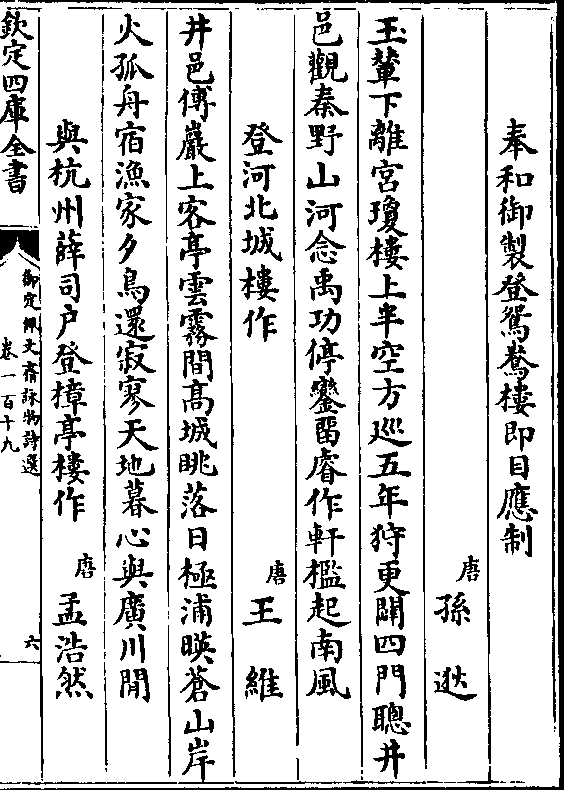 奉和御製登鴛鴦樓即目應制
唐 孫 逖
玉輦下離宮瓊樓上半空方巡五年狩更闢四門聰井
邑觀秦野山河念禹功停鑾留睿作軒檻起南風
登河北城樓作
唐 王 維
井邑傅巖上客亭雲霧間高城眺落日極浦暎蒼山岸
火孤舟宿漁家夕鳥還寂寥天地暮心與廣川閒
與杭州薛司戶登樟亭樓作
唐 孟浩然
欽定四庫全書
御定佩文齋詠物詩選
卷一百十九
六